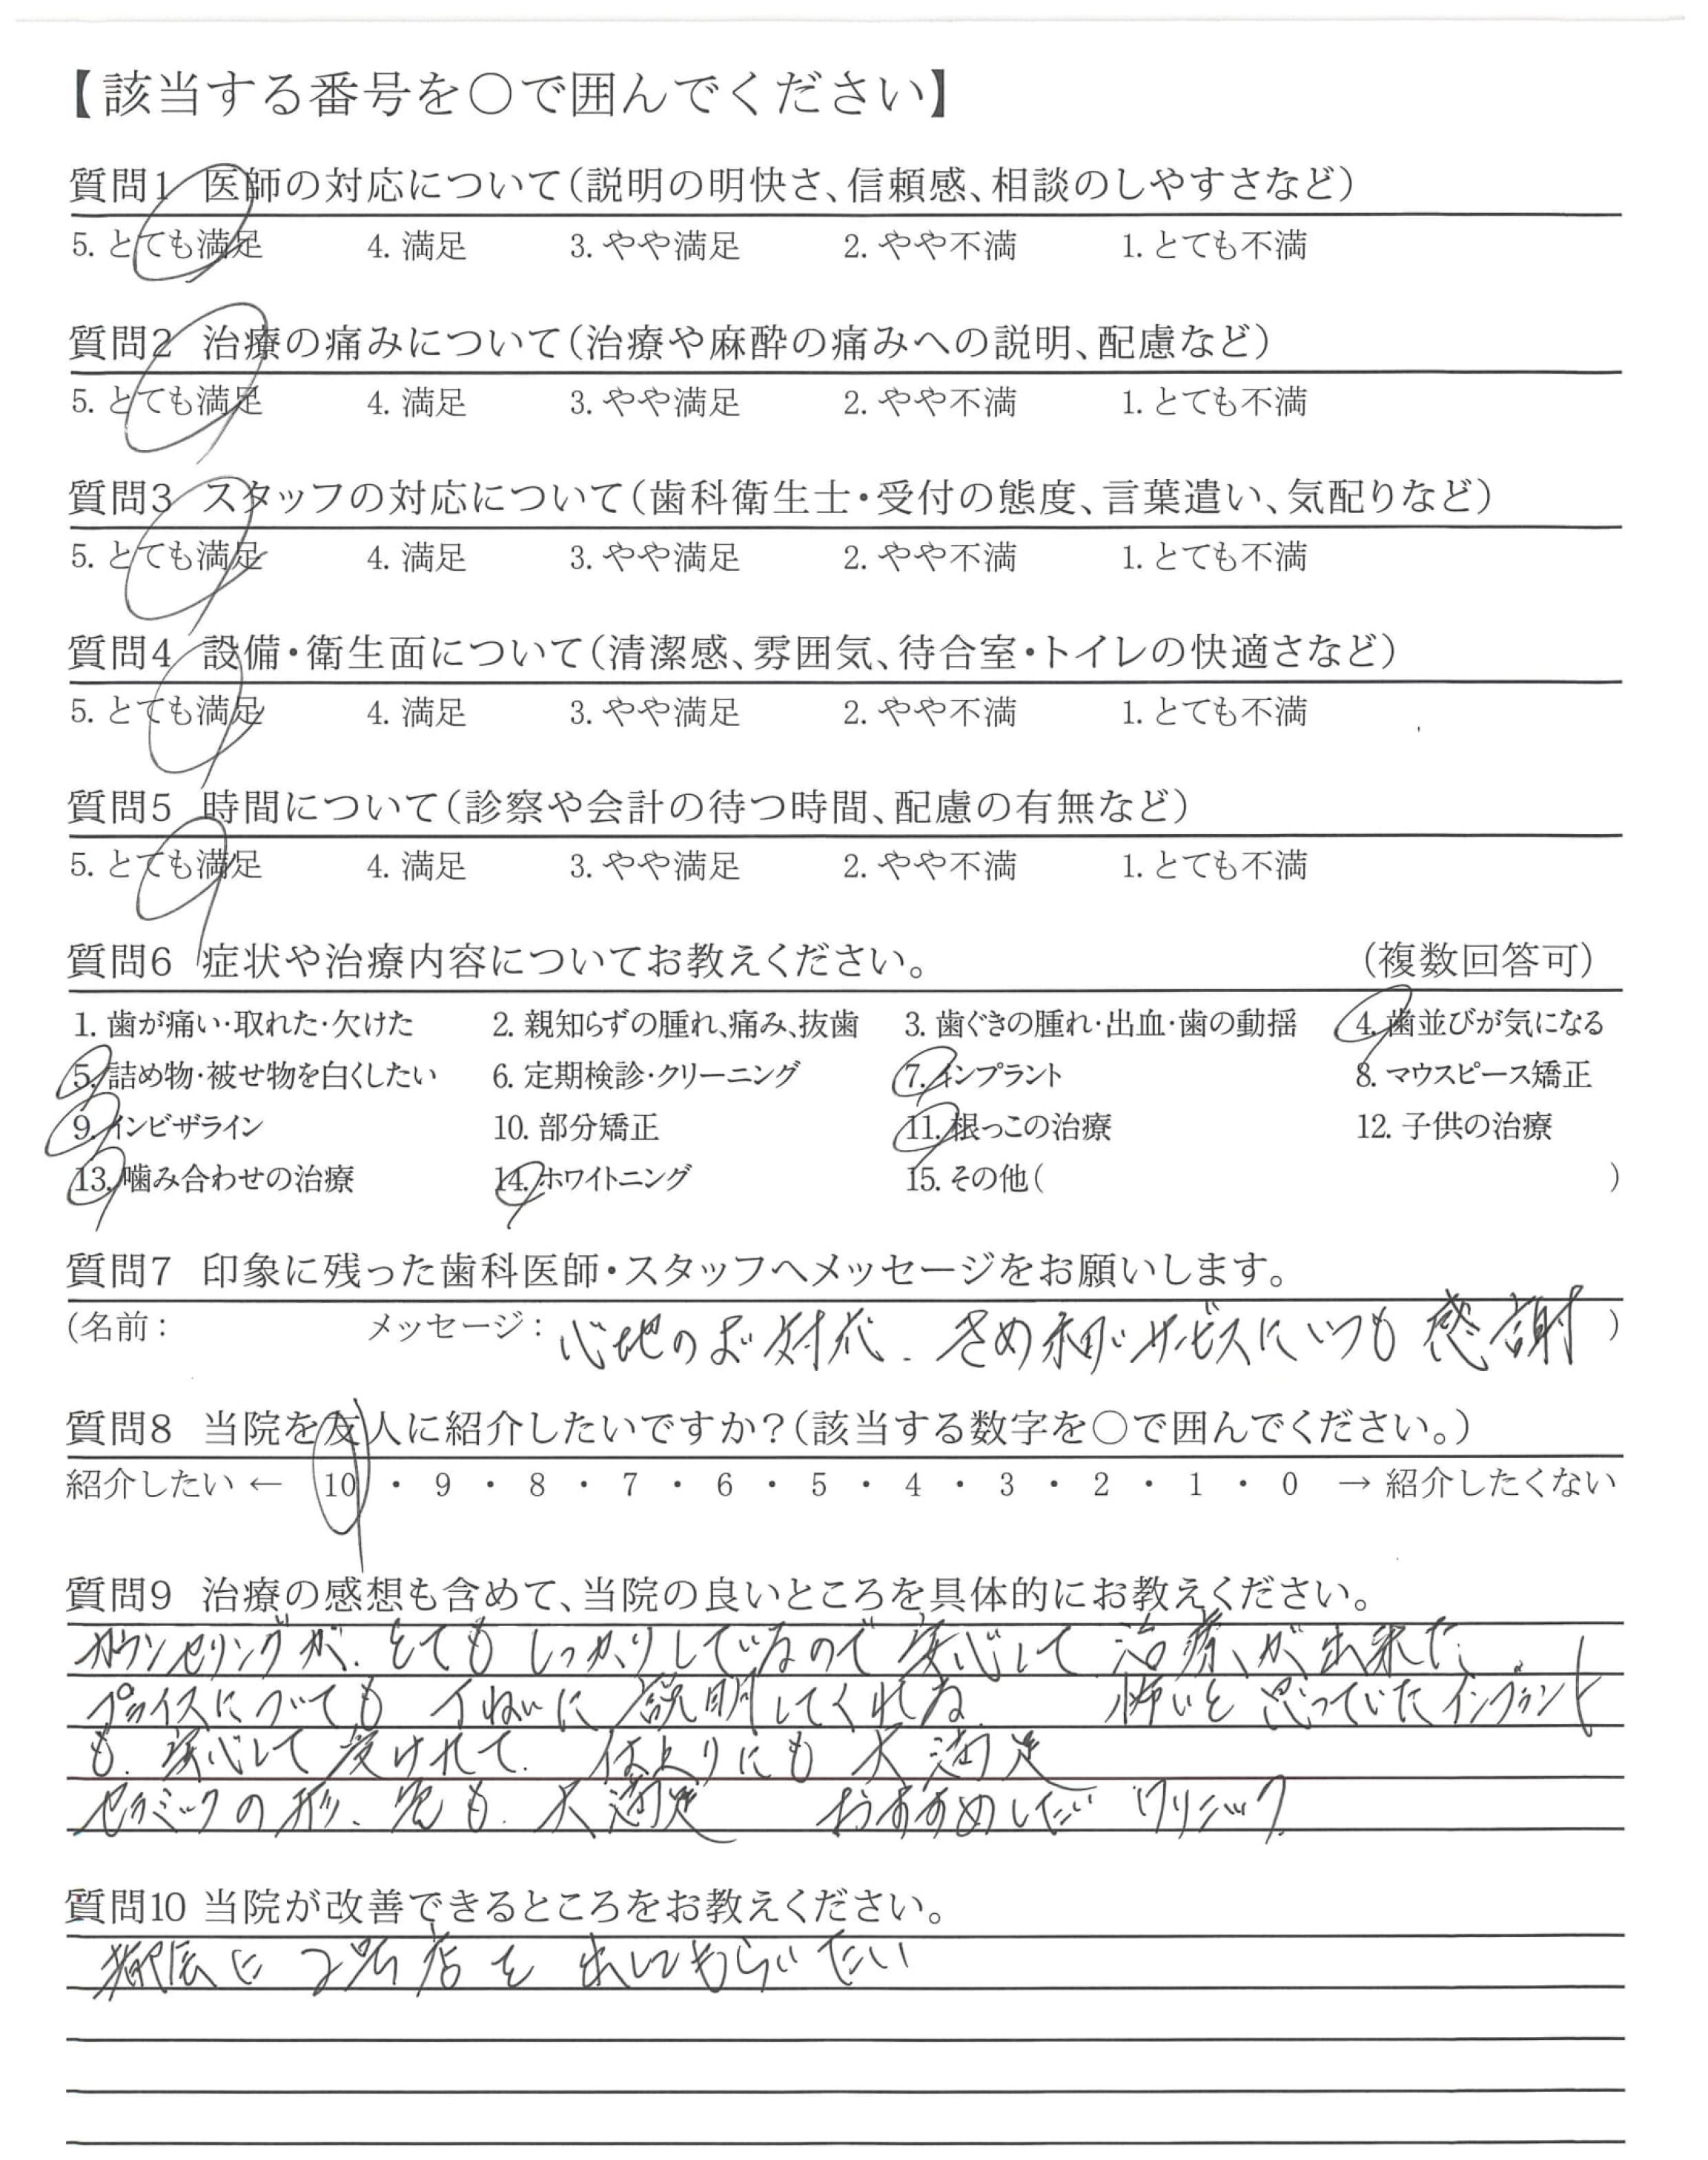 【該当する番号を○で囲んでください】
質問1 医師の対応について(説明の明快さ、信頼感、相談のしやすさなど)
5. とても満足 4. 満足 3. やや満足 2. やや不満 1. とても不満
質問2 治療の痛みについて(治療や麻酔の痛みへの説明、配慮など)
5. とても満足 4. 満足 3. やや満足 2. やや不満 1. とても不満
質問3 スタッフの対応について(歯科衛生士・受付の態度、言葉遣い、気配りなど)
5. とても満足 4. 満足 3. やや満足 2. やや不満 1. とても不満
質問4 設備・衛生面について(清潔感、雰囲気、待合室・トイレの快適さなど)
5. とても満足 4. 満足 3. やや満足 2. やや不満 1. とても不満
質問5 時間について(診察や会計の待つ時間、配慮の有無など)
5. とても満足 4. 満足 3. やや満足 2. やや不満 1. とても不満
質問6 症状や治療内容についてお教えください。 (複数回答可)
1. 歯が痛い・取れた・欠けた 2. 親知らずの腫れ、痛み、抜歯 3. 歯ぐきの腫れ・出血・歯の動揺 4. 歯並びが気になる
5. 詰め物・被せ物を白くしたい 6. 定期検診・クリーニング 7. インプラント 8. マウスピース矯正
9. インビザライン 10. 部分矯正 11. 根っこの治療 12. 子供の治療
13. 噛み合わせの治療 14. ホワイトニング 15. その他( )
質問7 印象に残った歯科医師・スタッフへメッセージをお願いします。
(名前: メッセージ: 心地のよい対応. きめ細かいサービスにいつも感謝 )
質問8 当院を友人に紹介したいですか?(該当する数字を○で囲んでください。)
紹介したい ← 10 ・ 9 ・ 8 ・ 7 ・ 6 ・ 5 ・ 4 ・ 3 ・ 2 ・ 1 ・ 0 → 紹介したくない
質問9 治療の感想も含めて、当院の良いところを具体的にお教えください。
カウンセリングが、とてもしっかりしているので安心して治療が出来た。
プライスについても ていねいに説明してくれる 怖いと思っていたインプラント
も、安心して受けれて. 仕上りにも大満足
セラミックの形、色も、大満足 おすすめしたいクリニック
質問10 当院が改善できるところをお教えください。
に2号店を出してもらいたい